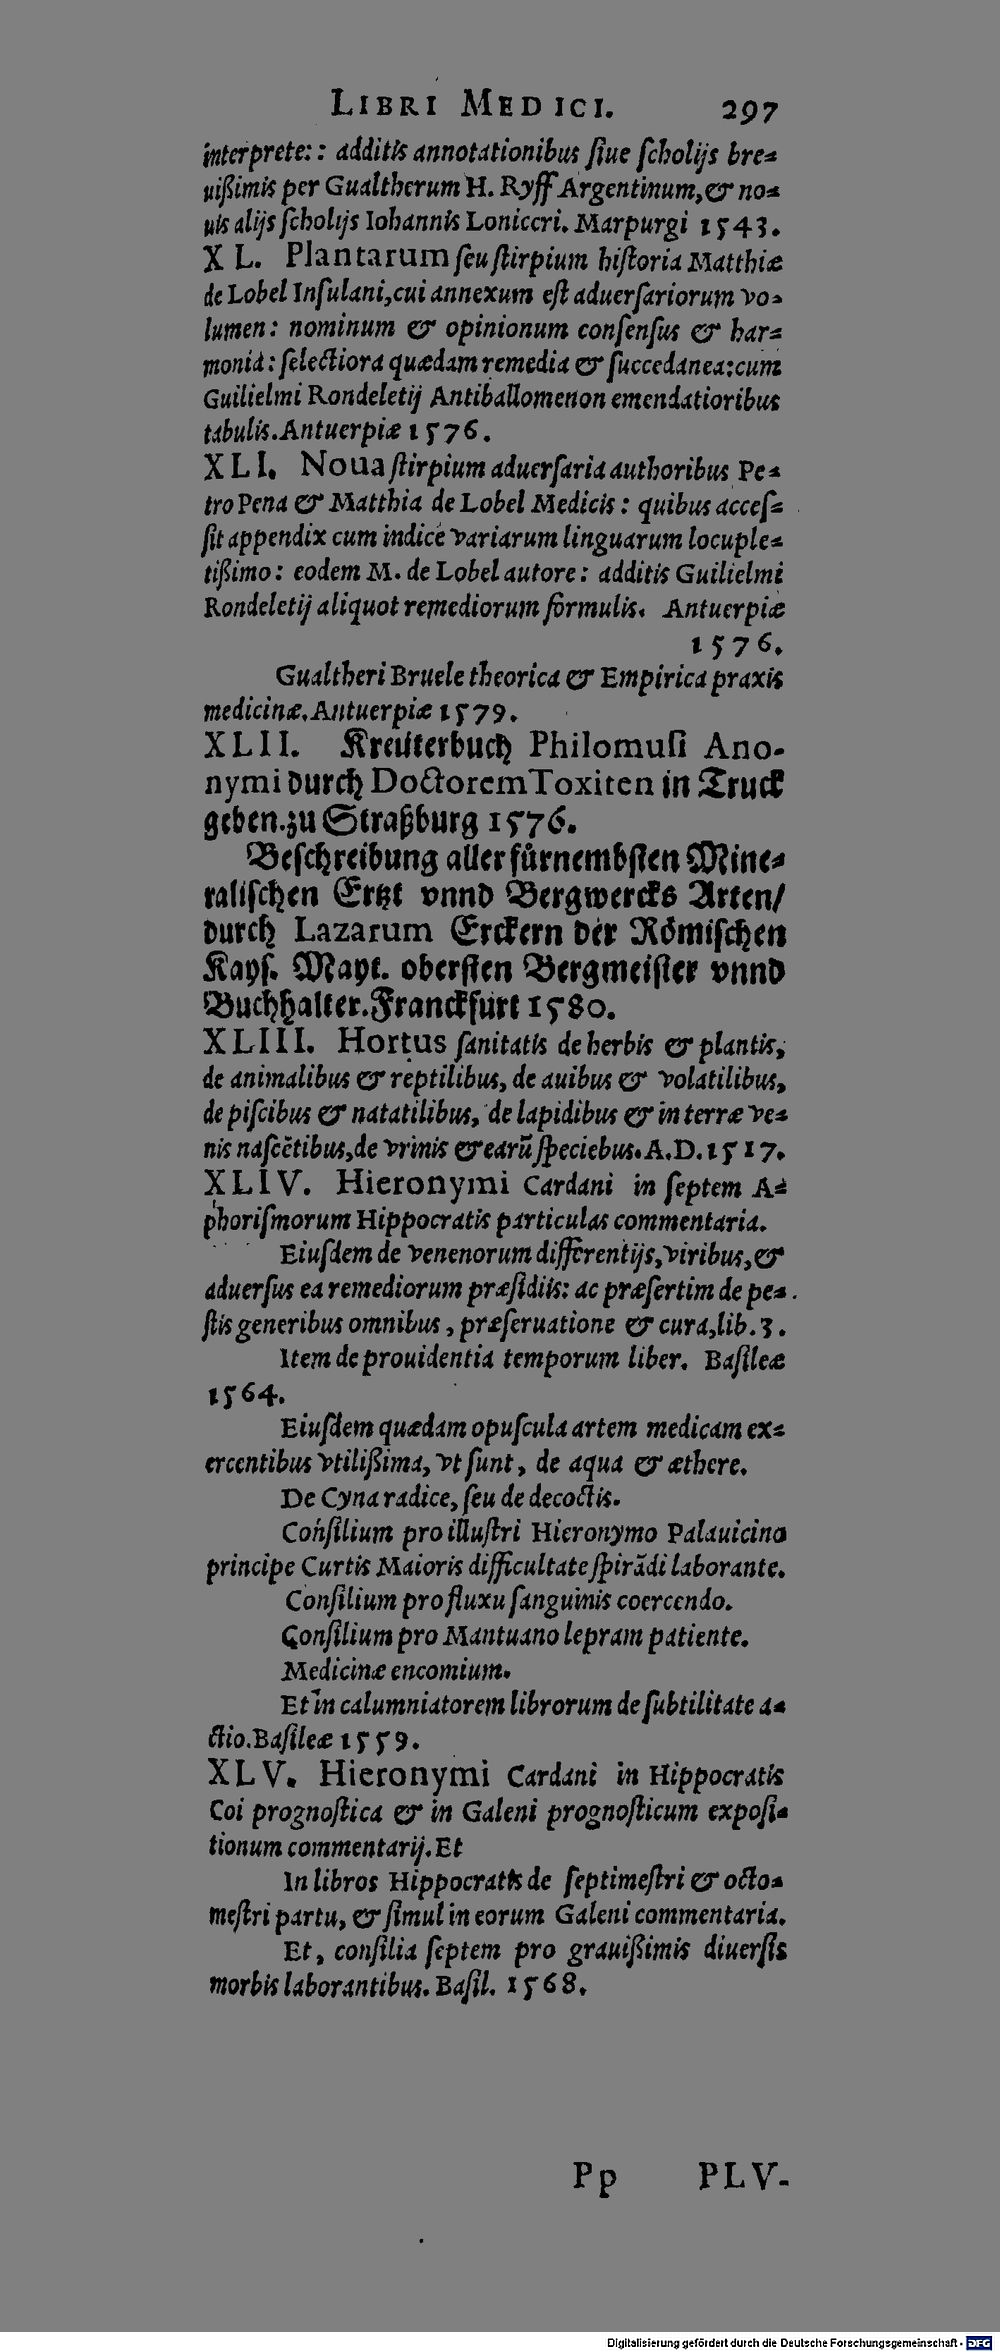 LIBRI MEDICI. 297
interprete: : additis annotationibus ſiue ſcholijs bre-
uißimis per Gualtherum H. Ryff Argentinum, & no-
uis alijs ſcholijs Iohannis Loniceri. Marpurgi 1543.
XL. Plantarum ſeu ſtirpium hiſtoria Matthiæ
de Lobel Inſulani, cui annexum eſt aduerſariorum vo-
lumen: nominum & opinionum conſenſus & har-
monia: ſelectiora quædam remedia & ſuccedanea: cum
Guilielmi Rondeletij Antiballomenon emendatioribus
tabulis. Antuerpiæ 1576.
XLI. Noua ſtirpium aduerſaria authoribus Pe-
tro Pena & Matthia de Lobel Medicis: quibus acceſ-
ſit appendix cum indice variarum linguarum locuple-
tißimo: eodem M. de Lobel autore: additis Guilielmi
Rondeletij aliquot remediorum formulis. Antuerpiæ
1576.
Gualtheri Bruele theorica & Empirica praxis
medicinæ. Antuerpiæ 1579.
XLII. Kreüterbuch Philomuſi Ano-
nymi durch Doctorem Toxiten in Truck
geben. zu Straßburg 1576.
Beſchreibung aller fürnembſten Mine-
raliſchen Ertzt vnnd Bergwercks Arten/
durch Lazarum Erckern der Römiſchen
Kayſ. Mayt. oberſten Bergmeiſter vnnd
Buchhalter. Franckfurt 1580.
XLIII. Hortus ſanitatis de herbis & plantis,
de animalibus & reptilibus, de auibus & volatilibus,
de piſcibus & natatilibus, de lapidibus & in terræ ve-
nis naſcẽtibus, de vrinis & earũ ſpeciebus. A.D. 1517.
XLIV. Hieronymi Cardani in ſeptem A-
phoriſmorum Hippocratis particulas commentaria.
Eiuſdem de venenorum differentijs, viribus, &
aduerſus ea remediorum præſidiis: ac præſertim de pe-
ſtis generibus omnibus, præſeruatione & cura, lib. 3.
Item de prouidentia temporum liber. Baſileæ
1564.
Eiuſdem quædam opuſcula artem medicam ex-
ercentibus vtilißima, vt ſunt, de aqua & æthere.
De Cyna radice, ſeu de decoctis.
Conſilium pro illuſtri Hieronymo Palauicino
principe Curtis Maioris difficultate ſpirãdi laborante.
Conſilium pro fluxu ſanguinis coercendo.
Conſilium pro Mantuano lepram patiente.
Medicinæ encomium.
Et in calumniatorem librorum de ſubtilitate a-
ctio. Baſileæ 1559.
XLV. Hieronymi Cardani in Hippocratis
Coi prognoſtica & in Galeni prognoſticum expoſi-
tionum commentarij. Et
In libros Hippocratis de ſeptimeſtri & octo-
meſtri partu, & ſimul in eorum Galeni commentaria.
Et, conſilia ſeptem pro grauißimis diuerſis
morbis laborantibus. Baſil. 1568.
Pp PLV-
Digitalisierung gefördert durch die Deutsche Forschungsgemeinschaft - DFG